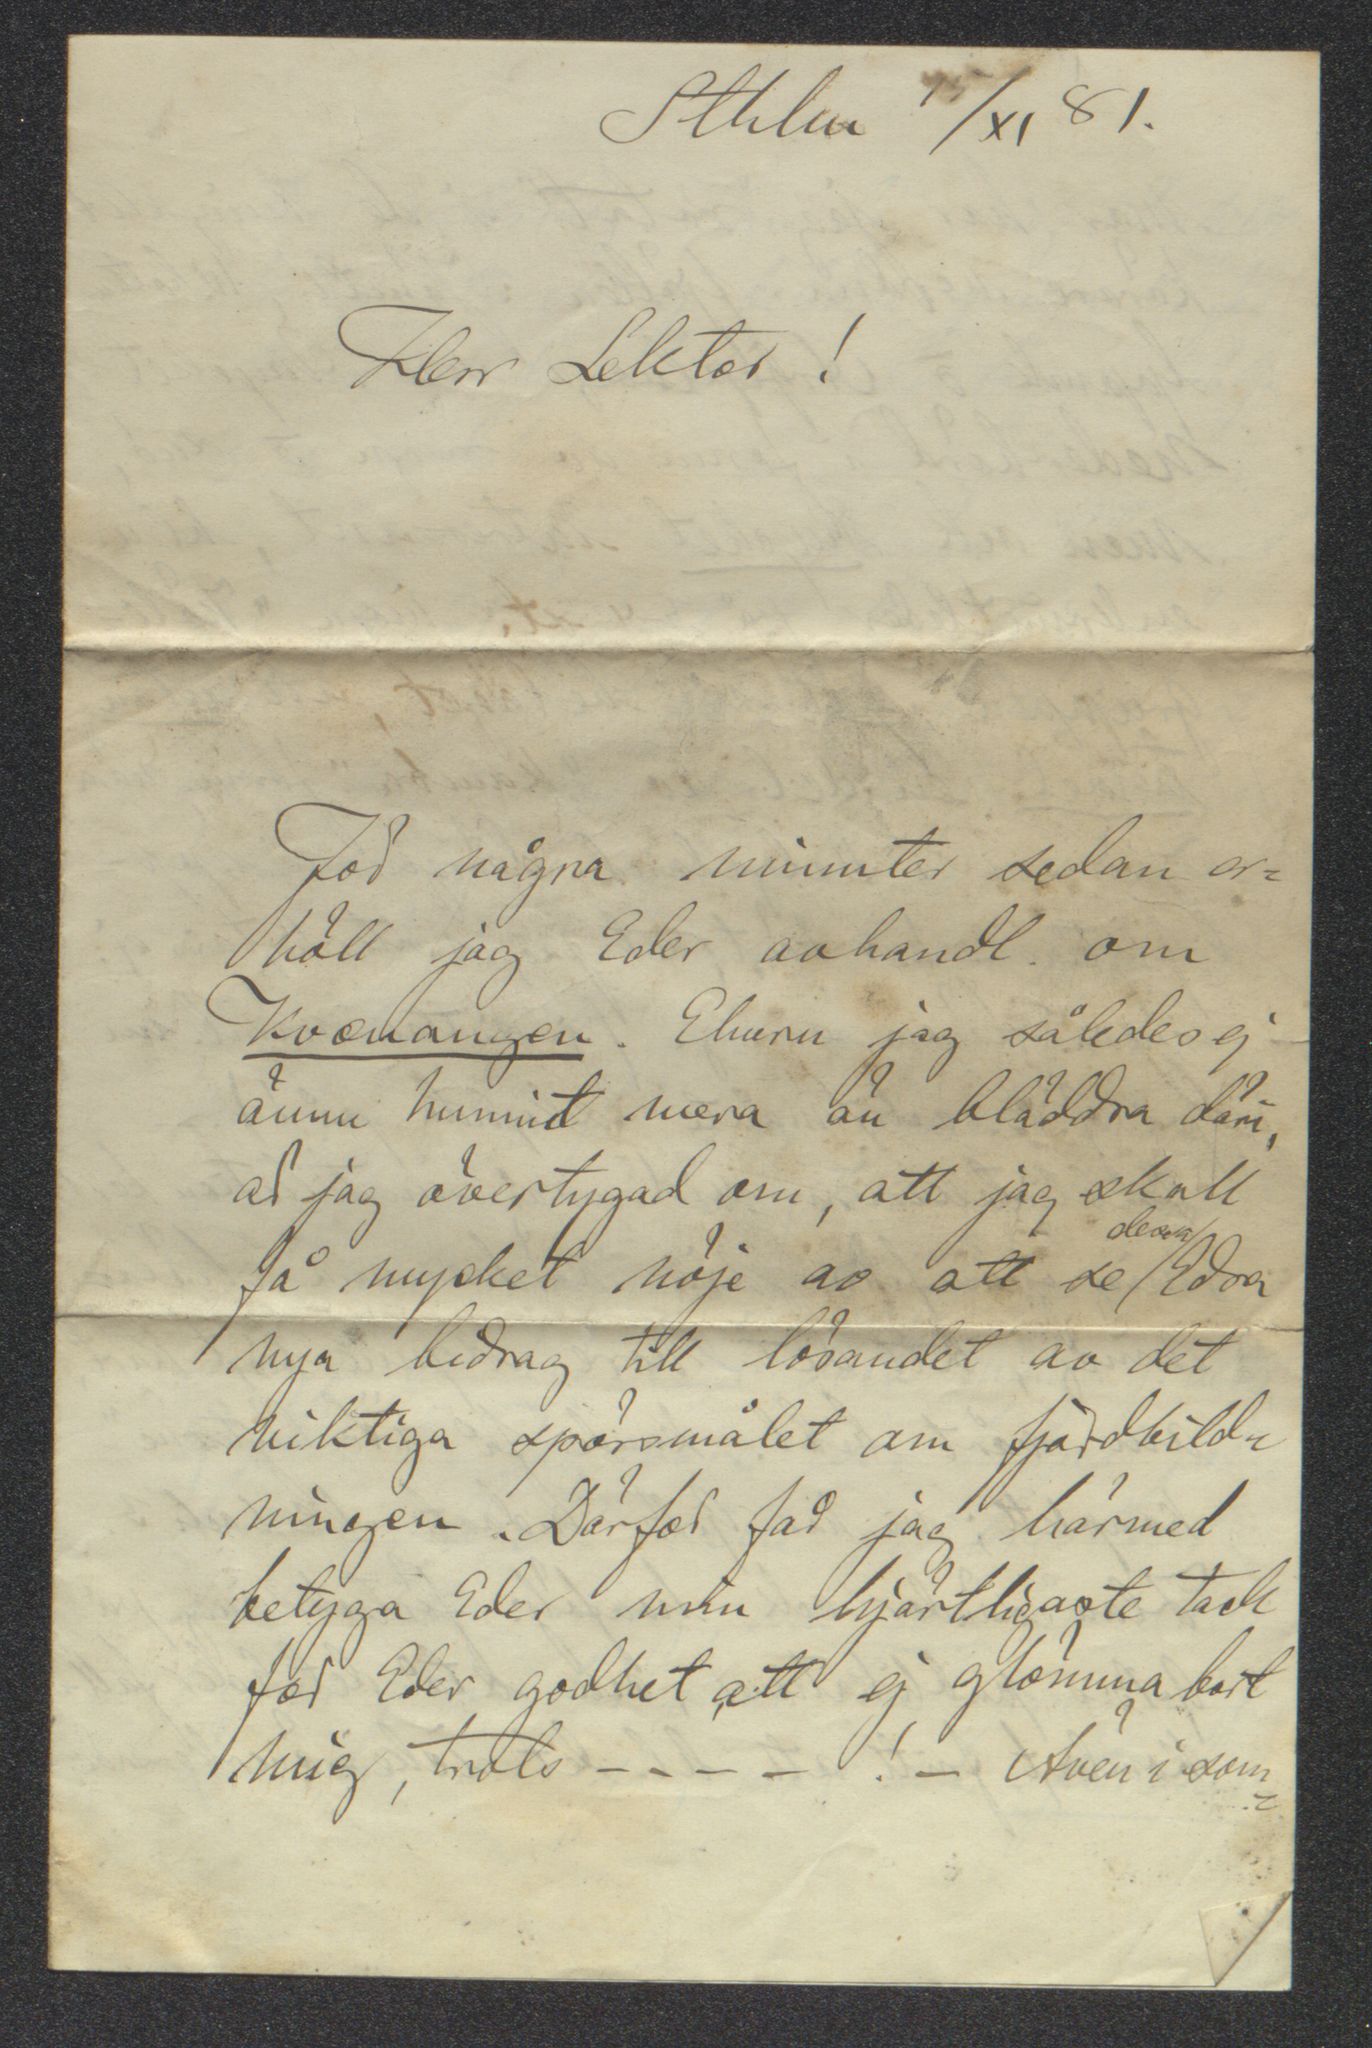 Sthlm /XI 81.
Herr Lektor!
För några minuter sedan er=
höll jag Eder avhandl. om
Kvænangen. Ehuru jag således ej
ännu hunnit mera än bläddra däri,
är jag övertygad om, att jag skall
få mycket nöje av att se dessa Edra
nya bidrag till lösandet av det
viktiga spörsmålet om fjordbild=
ningen. Därför får jag härmed
betyga Eder min hjärtligaste tack
för Eder godhet att ej glömma bort
mig, trots - - - - ! - Även i som=